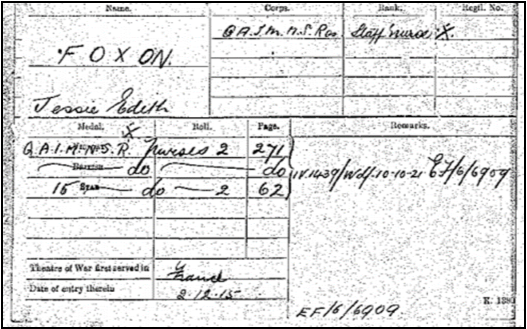 Name. Corps. Rank. Regtl. No.
FOXON. Q.A.I.M.N.S. Res Staff Nurse X.
Jessie Edith
Medal. X Roll. Page. Remarks.
Q.A.I.M.N.S.R. Nurses 2 271
do do IV.1439/Wd/.10-10-21 EF/6/6909
15 Star do 2 62
Theatre of War first served in France
Date of entry therein 2-12-15
EF/6/6909
K. 1380